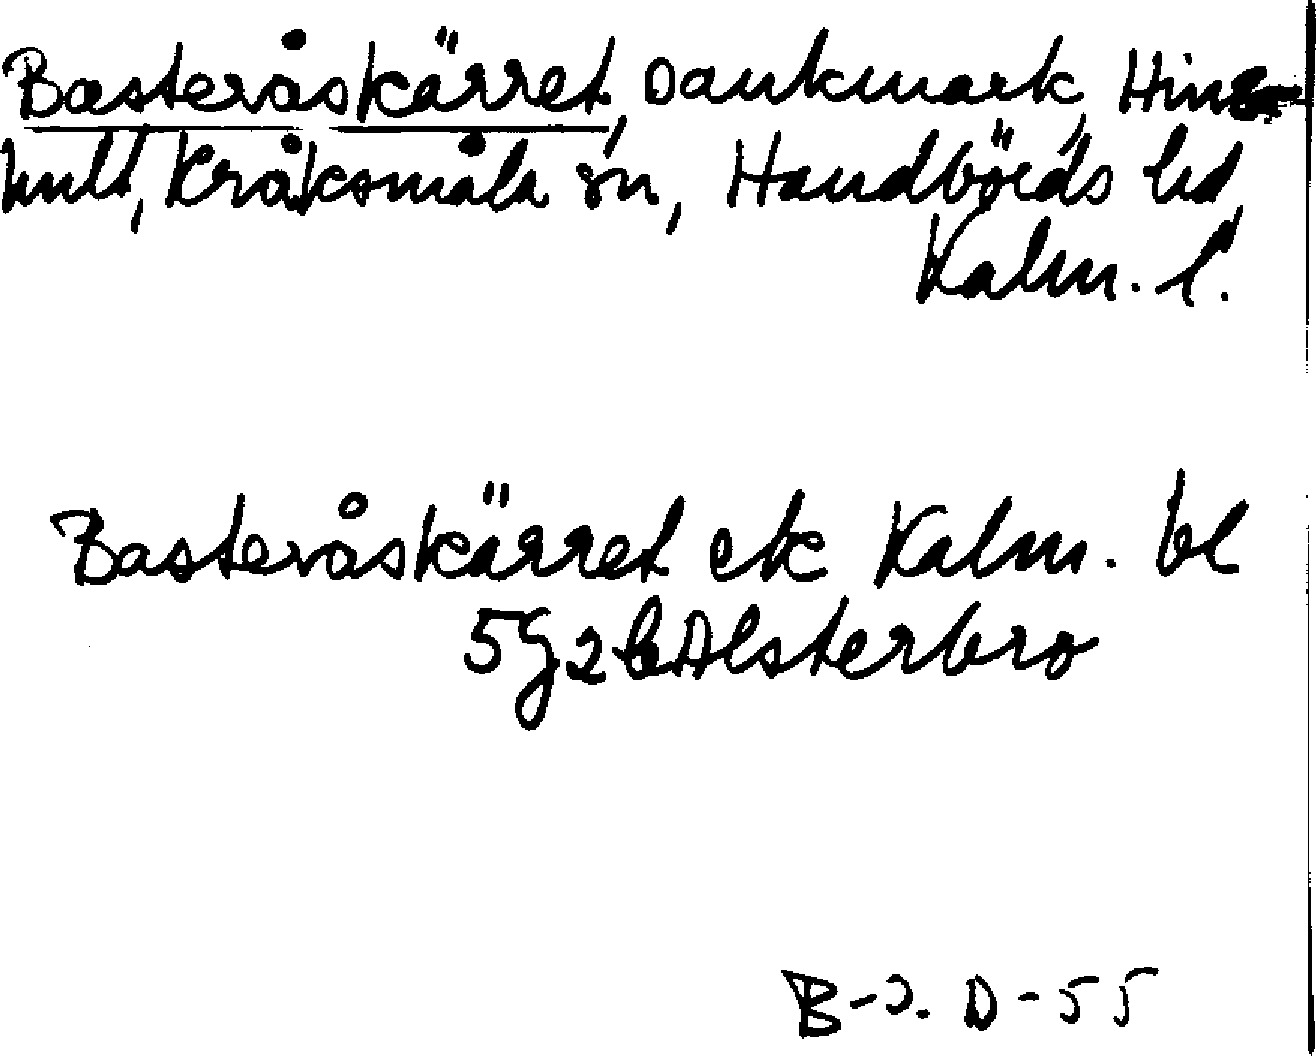 Basteråskärret, Dankmark, Hins-
hult, Kråksmåla sn, Handbörds hd,
Kalm. l.
Basteråskärret ek Kalm. bl
5G2b Alsterbro
B-J. D-55